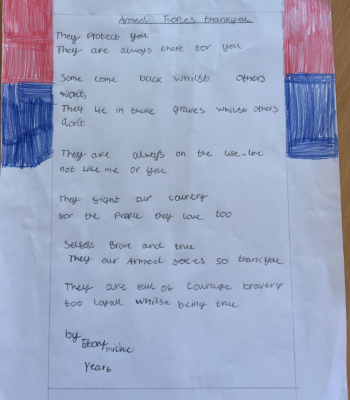 Armed Forces thankyou
They Protect you
They are always there for you
Some come back whilst others
wont,
They lie in there graves whilst others
dont
They are always on the use-line
not like me or you
They fight our country
for the people they love too
Selfess Brave and true
They our Armed forces so thankyou
They are full of Courage bravery
too loyall whilse being true
by
Ebony
Year 6